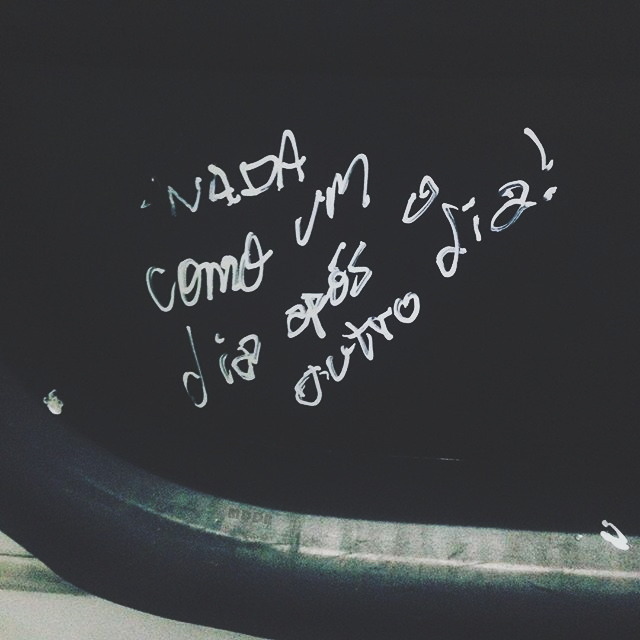 NADA
como um
dia após o
outro dia!